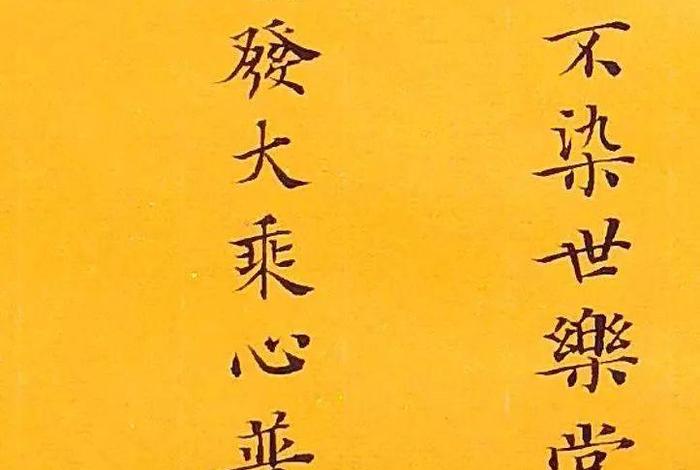 不染世樂常
發大乘心普